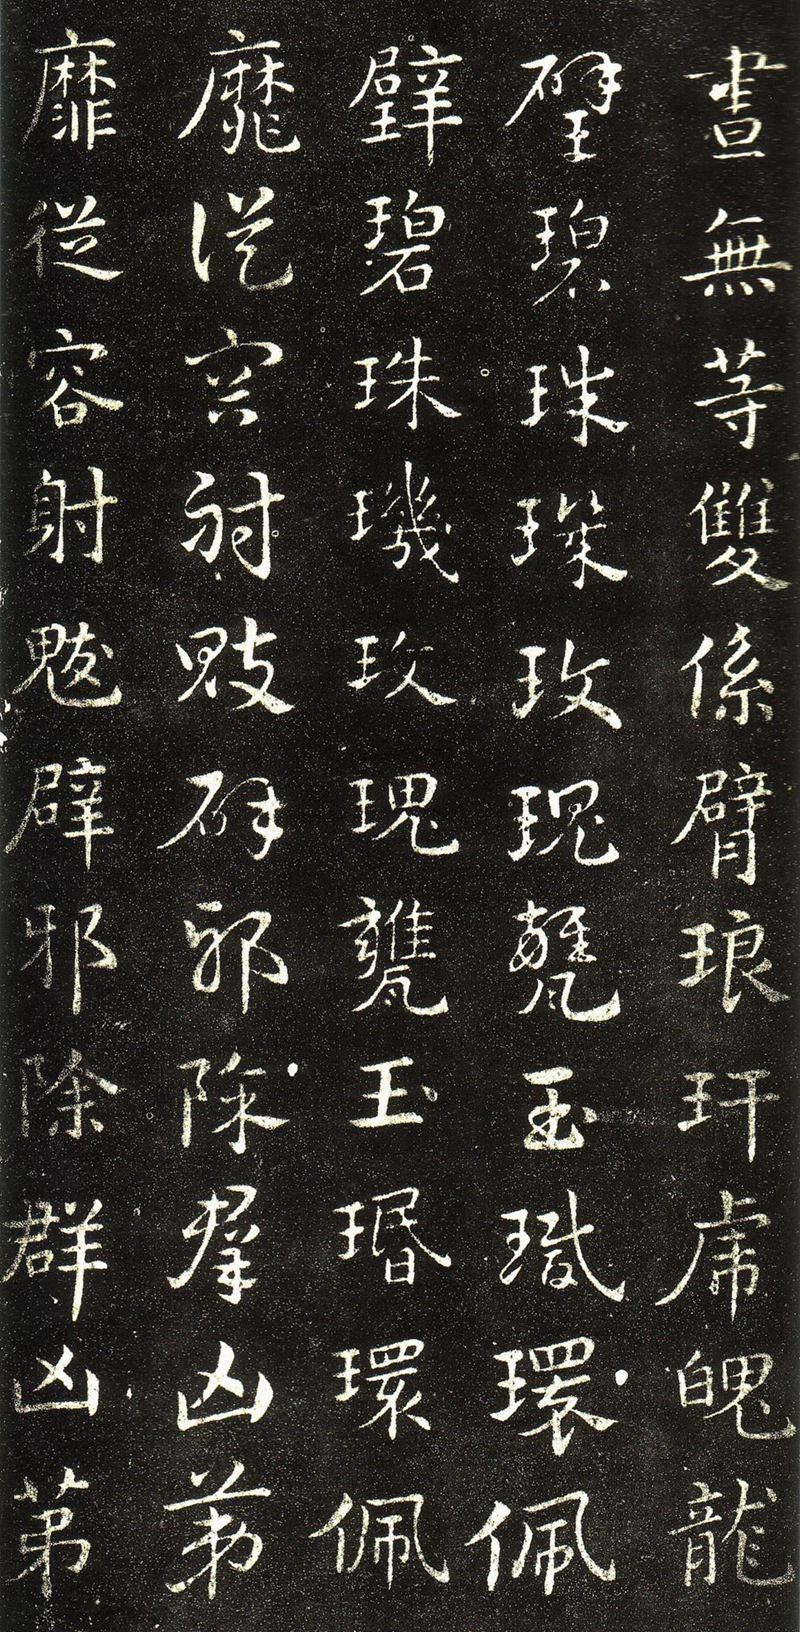 畫無等雙係臂琅玕虎魄龍
璧碧珠璣玫瑰甕玉珢環佩
璧碧珠璣玫瑰甕玉瑉環佩
靡從容射鬾辟邪除群凶第
靡從容射鬾辟邪除群凶第